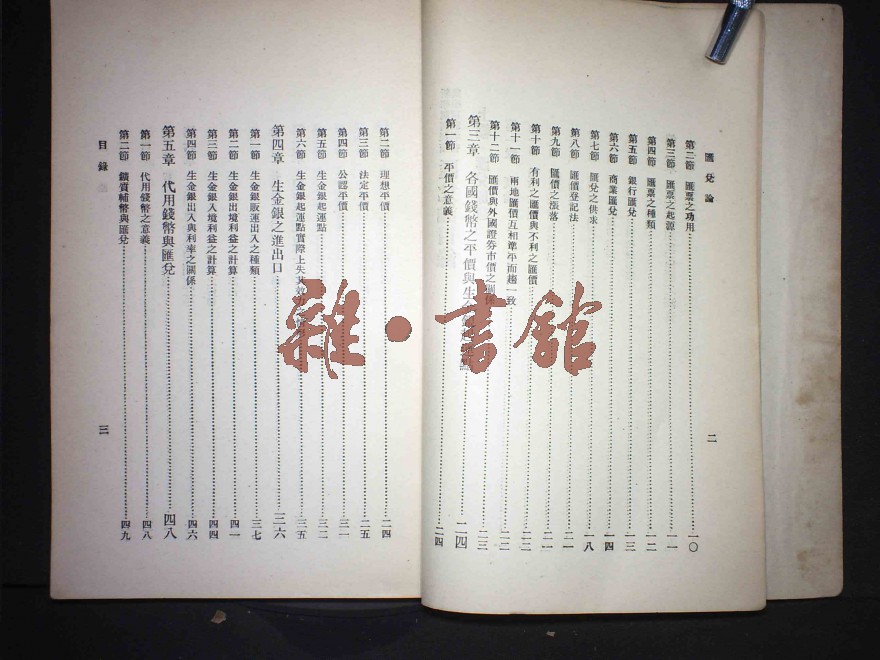 匯兌論
二
第二節 匯票之功用 一〇
第三節 匯票之起源 一一
第四節 匯票之種類 一二
第五節 銀行匯兌 一三
第六節 商業匯兌 一四
第七節 匯兌之供求 一八
第八節 匯價登記法 二一
第九節 匯價之漲落 二一
第十節 有利之匯價與不利之匯價 二二
第十一節 兩地匯價互相準平而趨一致 二二
第十二節 匯價與外國證券市價之關係 二三
第三章 各國錢幣之平價與生金 二四
第一節 平價之意義 二四
第二節 理想平價 二四
第三節 法定平價 二五
第四節 公認平價 三一
第五節 生金銀起運點 三二
第六節 生金銀起運點實際上失其效力 三五
第四章 生金銀之進出口 三六
第一節 生金銀販運出入之種類 三七
第二節 生金銀出境利益之計算 四一
第三節 生金銀入境利益之計算 四四
第四節 生金銀出入與利率之關係 四六
第五章 代用錢幣與匯兌 四八
第一節 代用錢幣之意義 四八
第二節 鎳質補幣與匯兌 四九
目錄
三
雜·書館